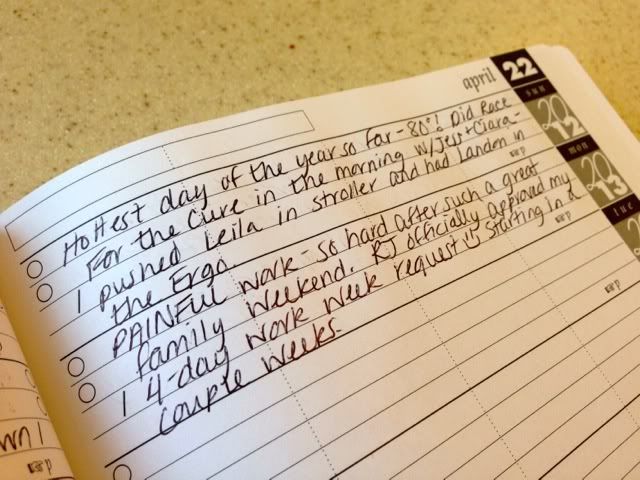 april 22
sun
2012
Hottest day of the year so far - 80°! Did Race
For the Cure in the morning w/Jess + Ciara -
I pushed Leila in stroller and had Landen in
the Ergo
☞p
mon
2013
PAINFUL work - so hard after such a great
family weekend. RJ officially approved my
4-day work week request!! Starting in a
couple weeks.
☞p
tue
2
☞p
wn!
☞p